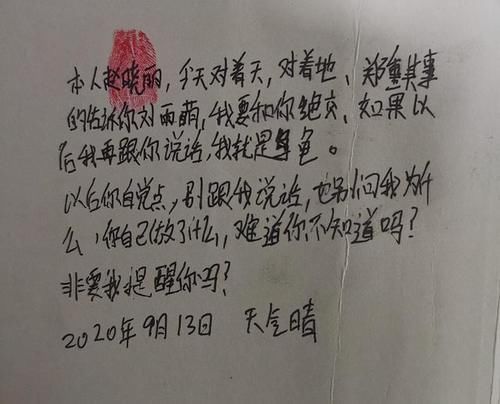 本人赵晓丽，今天对着天，对着地、郑重其事
的告诉你刘雨萌，我要和你绝交、如果以
后我再跟你说话，我就是龟。
以后你自觉点，别跟我说话，也别问我为什
么，你自己做了什么，难道你不知道吗？
非要我提醒你吗？
2020年9月13日 天气晴